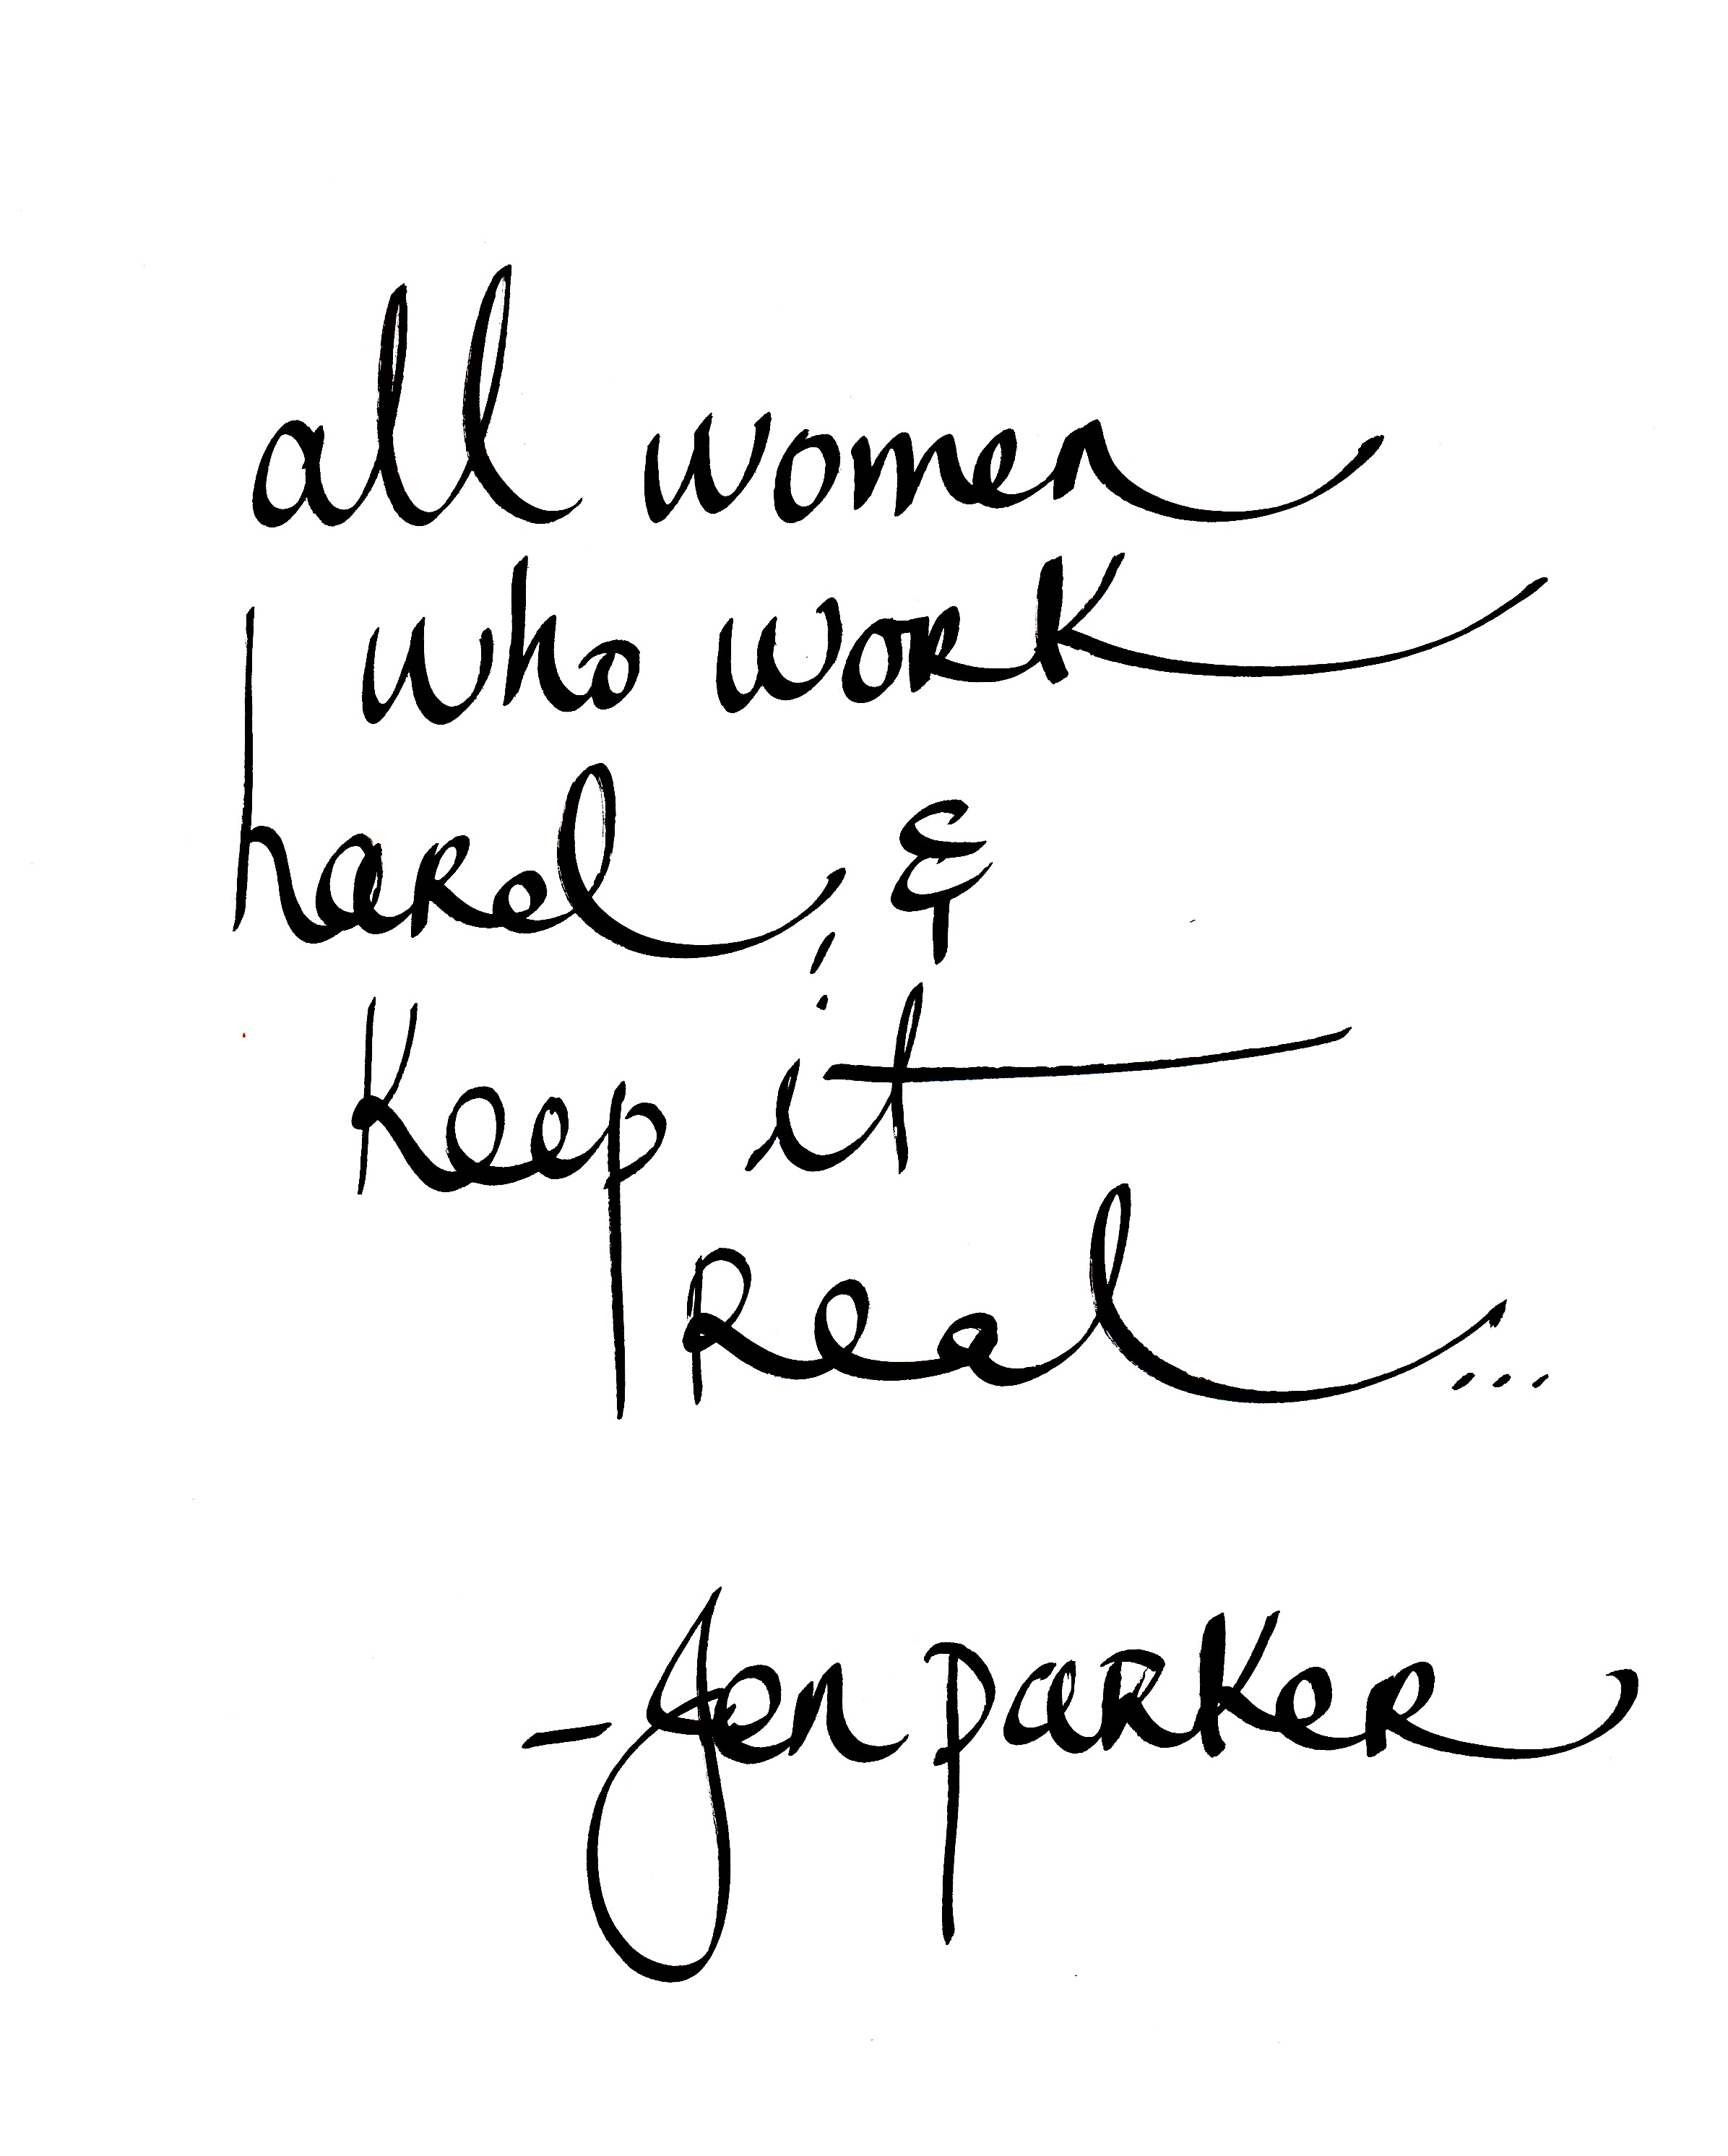 all women
who work
hard, &
keep it
Real...
- Jen parker